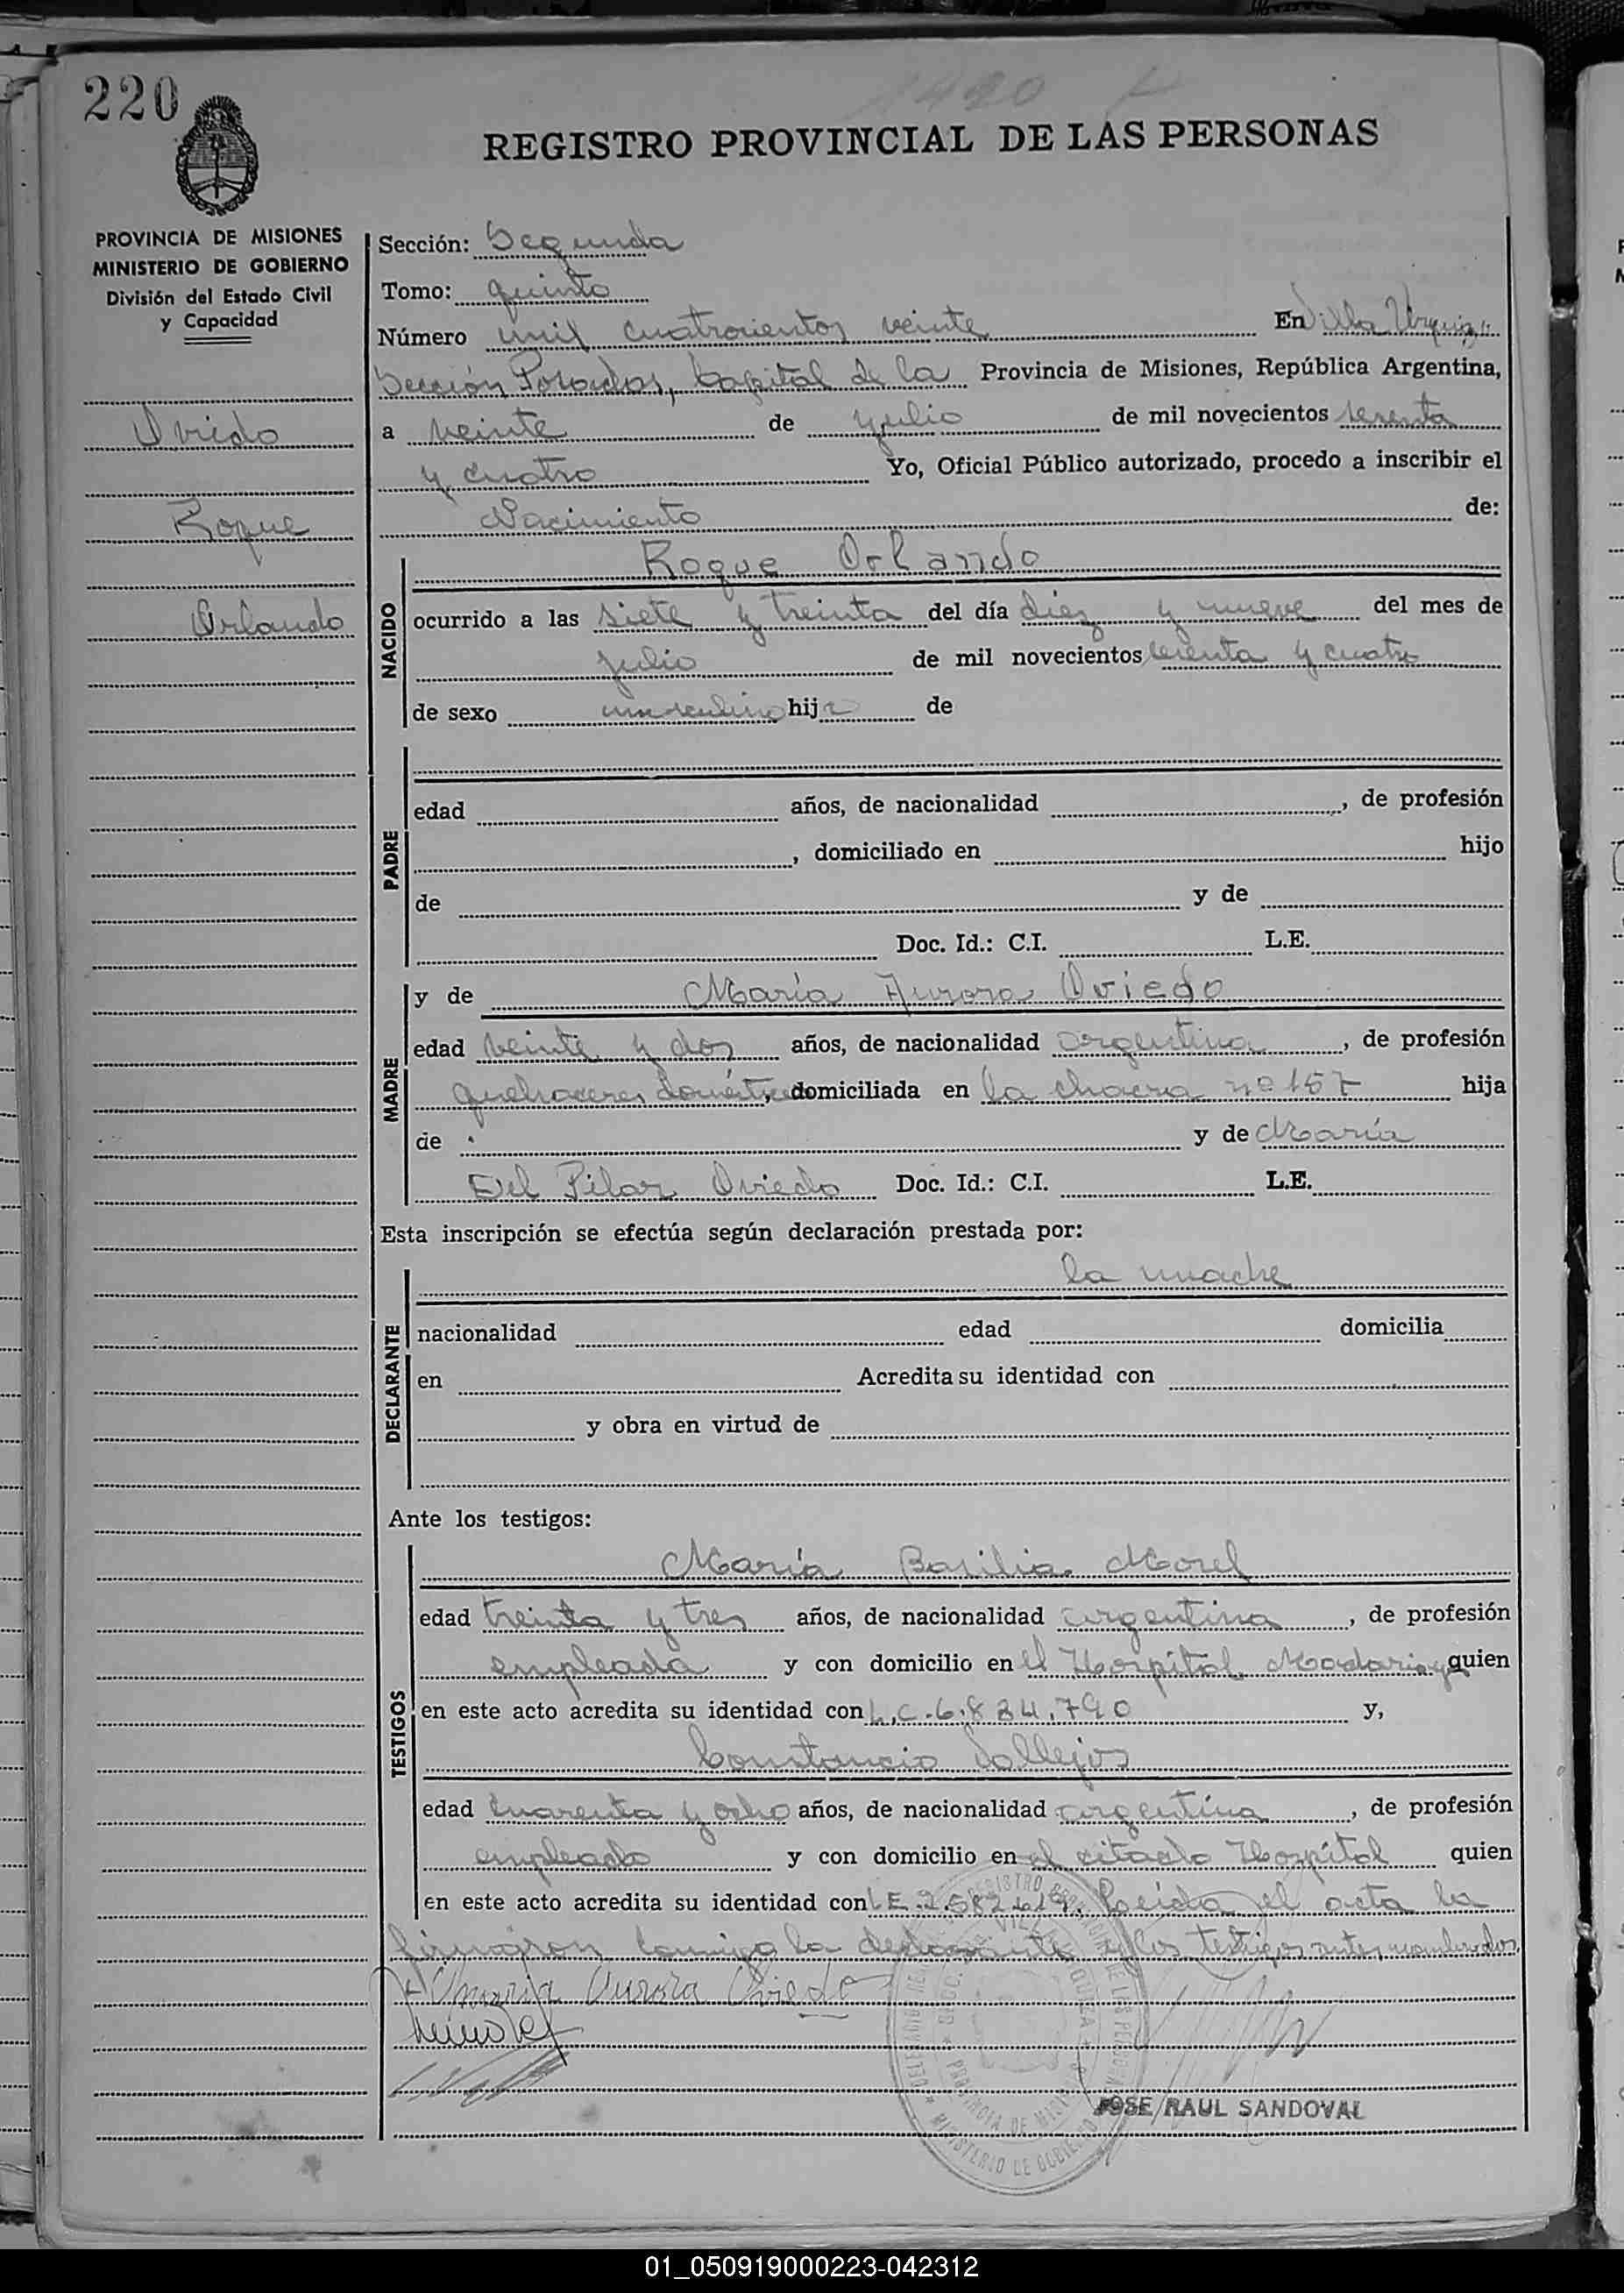 220
1420
REGISTRO PROVINCIAL DE LAS PERSONAS
PROVINCIA DE MISIONES
MINISTERIO DE GOBIERNO
División del Estado Civil
y Capacidad
Oviedo
Roque
Orlando
Sección: Segunda
Tomo: quinto
Número mil cuatrocientos veinte En Villa Urquiza
Sección Posadas, Capital de la Provincia de Misiones, República Argentina,
a veinte de julio de mil novecientos sesenta
y cuatro Yo, Oficial Público autorizado, procedo a inscribir el
Nacimiento de:
NACIDO
Roque Orlando
ocurrido a las siete y treinta del día diez y nueve del mes de
julio de mil novecientos sesenta y cuatro
de sexo masculino hijo de
PADRE
edad años, de nacionalidad , de profesión
, domiciliado en hijo
de y de
Doc. Id.: C.I. L.E.
MADRE
y de María Aurora Oviedo
edad veinte y dos años, de nacionalidad argentina, de profesión
quehaceres domést, domiciliada en la chacra nº 157 hija
de y de María
Del Pilar Oviedo Doc. Id.: C.I. L.E.
Esta inscripción se efectúa según declaración prestada por:
DECLARANTE
la madre
nacionalidad edad domicilia
en Acredita su identidad con
y obra en virtud de
Ante los testigos:
TESTIGOS
María Basilia Morel
edad treinta y tres años, de nacionalidad argentina, de profesión
empleada y con domicilio en el Hospital Madariaga quien
en este acto acredita su identidad con L.C.6.834.790 y,
Constancio Vallejos
edad cuarenta y ocho años, de nacionalidad argentina, de profesión
empleado y con domicilio en el citado Hospital quien
en este acto acredita su identidad con L.E. Leída el acta la
firmaron conmigo la declarante y los testigos antes nombrados.
Maria Aurora Oviedo
JOSE RAUL SANDOVAL
01_050919000223-042312